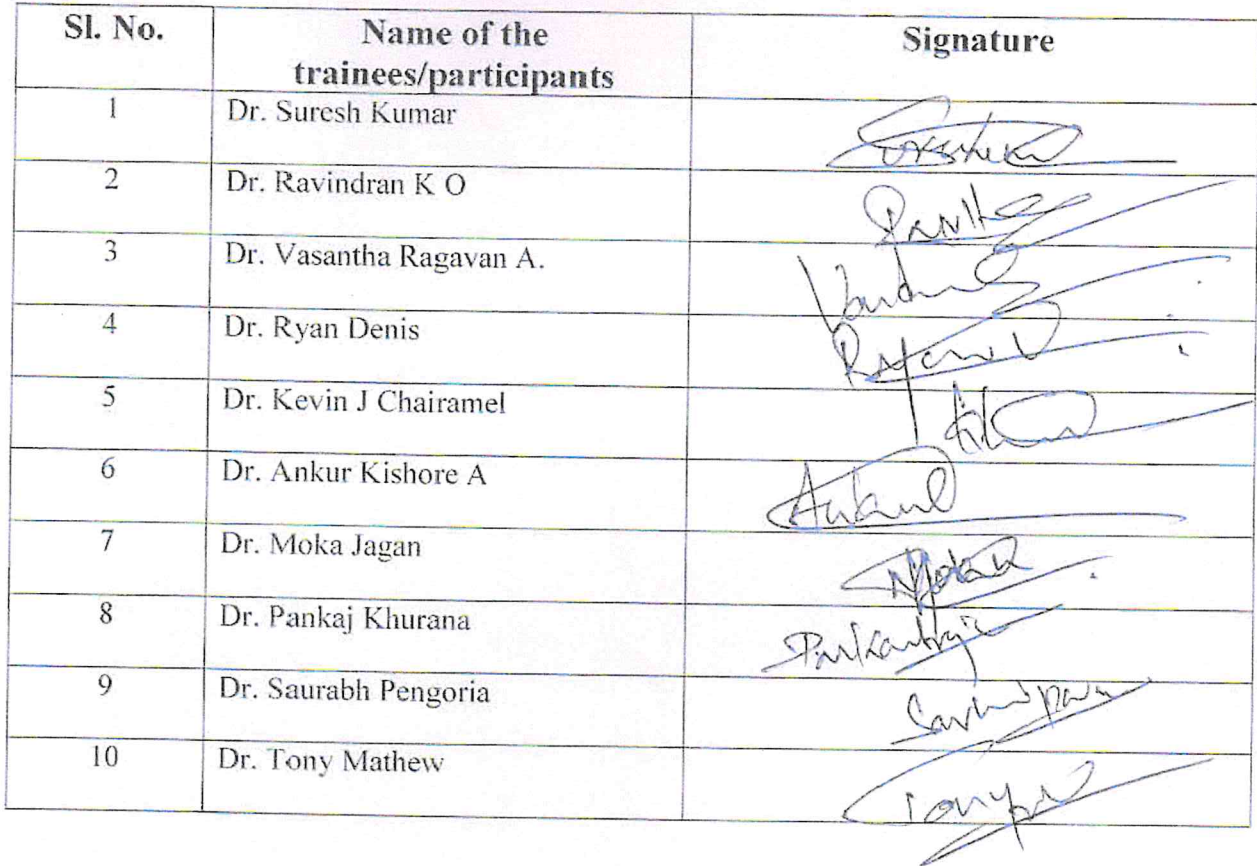 Sl. No. Name of the trainees/participants Signature
1 Dr. Suresh Kumar
2 Dr. Ravindran K O
3 Dr. Vasantha Ragavan A.
4 Dr. Ryan Denis
5 Dr. Kevin J Chairamel
6 Dr. Ankur Kishore A
7 Dr. Moka Jagan
8 Dr. Pankaj Khurana
9 Dr. Saurabh Pengoria
10 Dr. Tony Mathew